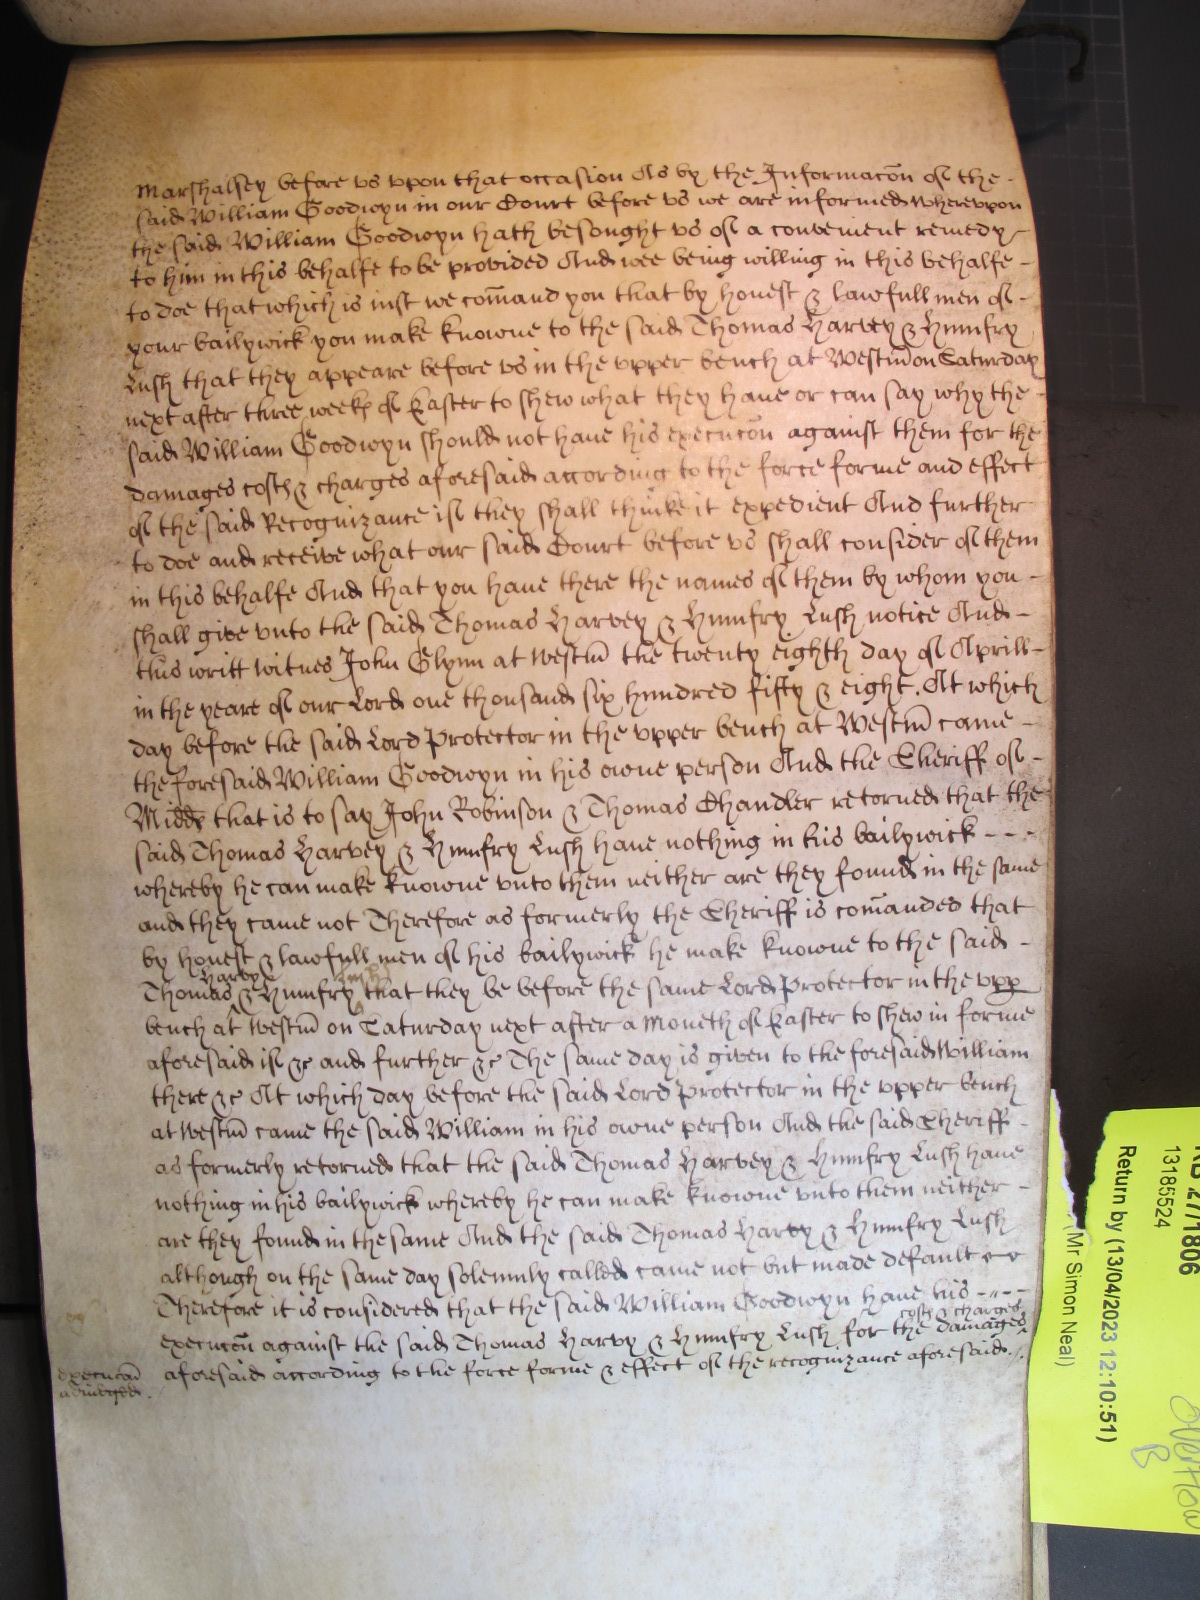 Marshalsey before vs vpon that occasion As by the Informacōn of the -
said William Goodwyn in our Court before vs we are informed Wherevpon
the said William Goodwyn hath besought vs of a convenient remedy
to him in this behalfe to be provided And wee being willing in this behalfe -
to doe that which is iust we com̄and you that by honest & lawfull men of -
your bailywick you make knowne to the said Thomas Harvey & Humfry
Lush that they appeare before vs in the vpper bench at Westm̄ on Saturday
next after three weekes of Easter to shew what they haue or can say why the -
said William Goodwyn should not haue his execucōn against them for the
damages costs & charges aforesaid according to the force forme and effect
of the said Recognizance if they shall thinke it expedient And further
to doe and receive what our said Court before vs shall consider of them
in this behalfe And that you haue there the names of them by whom you -
shall give vnto the said Thomas Harvey & Humfry Lush notice And -
this writt Witnes John Glynn at Westm̄ the twenty eighth day of Aprill -
in the yeare of our Lord one thousand six hundred fifty & eight. At which
day before the said Lord Protector in the vpper bench at Westm̄ came -
the foresaid William Goodwyn in his owne person And the Sheriff of -
Midds that is to say John Robinson & Thomas Chandler retorned that the
said Thomas Harvey & Humfry Lush haue nothing in his bailywick - - -
whereby he can make knowne vnto them neither are they found in the same
and they came not Therefore as formerly the Sheriff is com̄anded that
by honest & lawfull men of his bailywick he make knowne to the said -
Harvy
Thomas & Humfry that they be before the same Lord Protector in the vpp
bench at Westm̄ on Saturday next after a Moneth of Easter to shew in forme
aforesaid if &c and further &c The same day is given to the foresaid William
there &c At which day before the said Lord Protector in the vpper bench
at Westm̄ came the said William in his owne person And the said Sheriff -
as formerly retorned that the said Thomas Harvey & Humfry Lush haue
nothing in his bailywick whereby he can make knowne vnto them neither -
are they found in the same And the said Thomas Harvy & Humfry Lush
although on the same day solemnly called came not but made default
Therefore it is considered that the said William Goodwyn haue his - - - -
costs & charges
execucōn against the said Thomas Harvy & Humfry Lush for the damages
aforesaid according to the force forme & effect of the recognizance aforesaid.
execucōn
27/1806
13185524
Return by (13/04/2023 12:10:51)
(Mr Simon Neal)
overflow
B